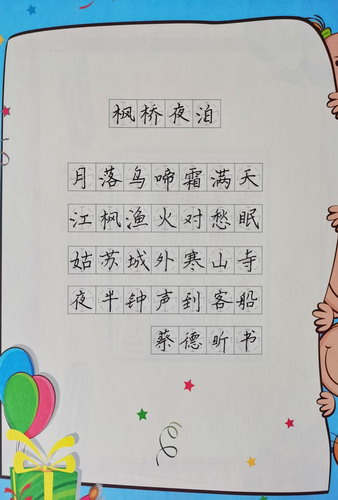 枫桥夜泊
月落乌啼霜满天
江枫渔火对愁眠
姑苏城外寒山寺
夜半钟声到客船
蔡德昕书